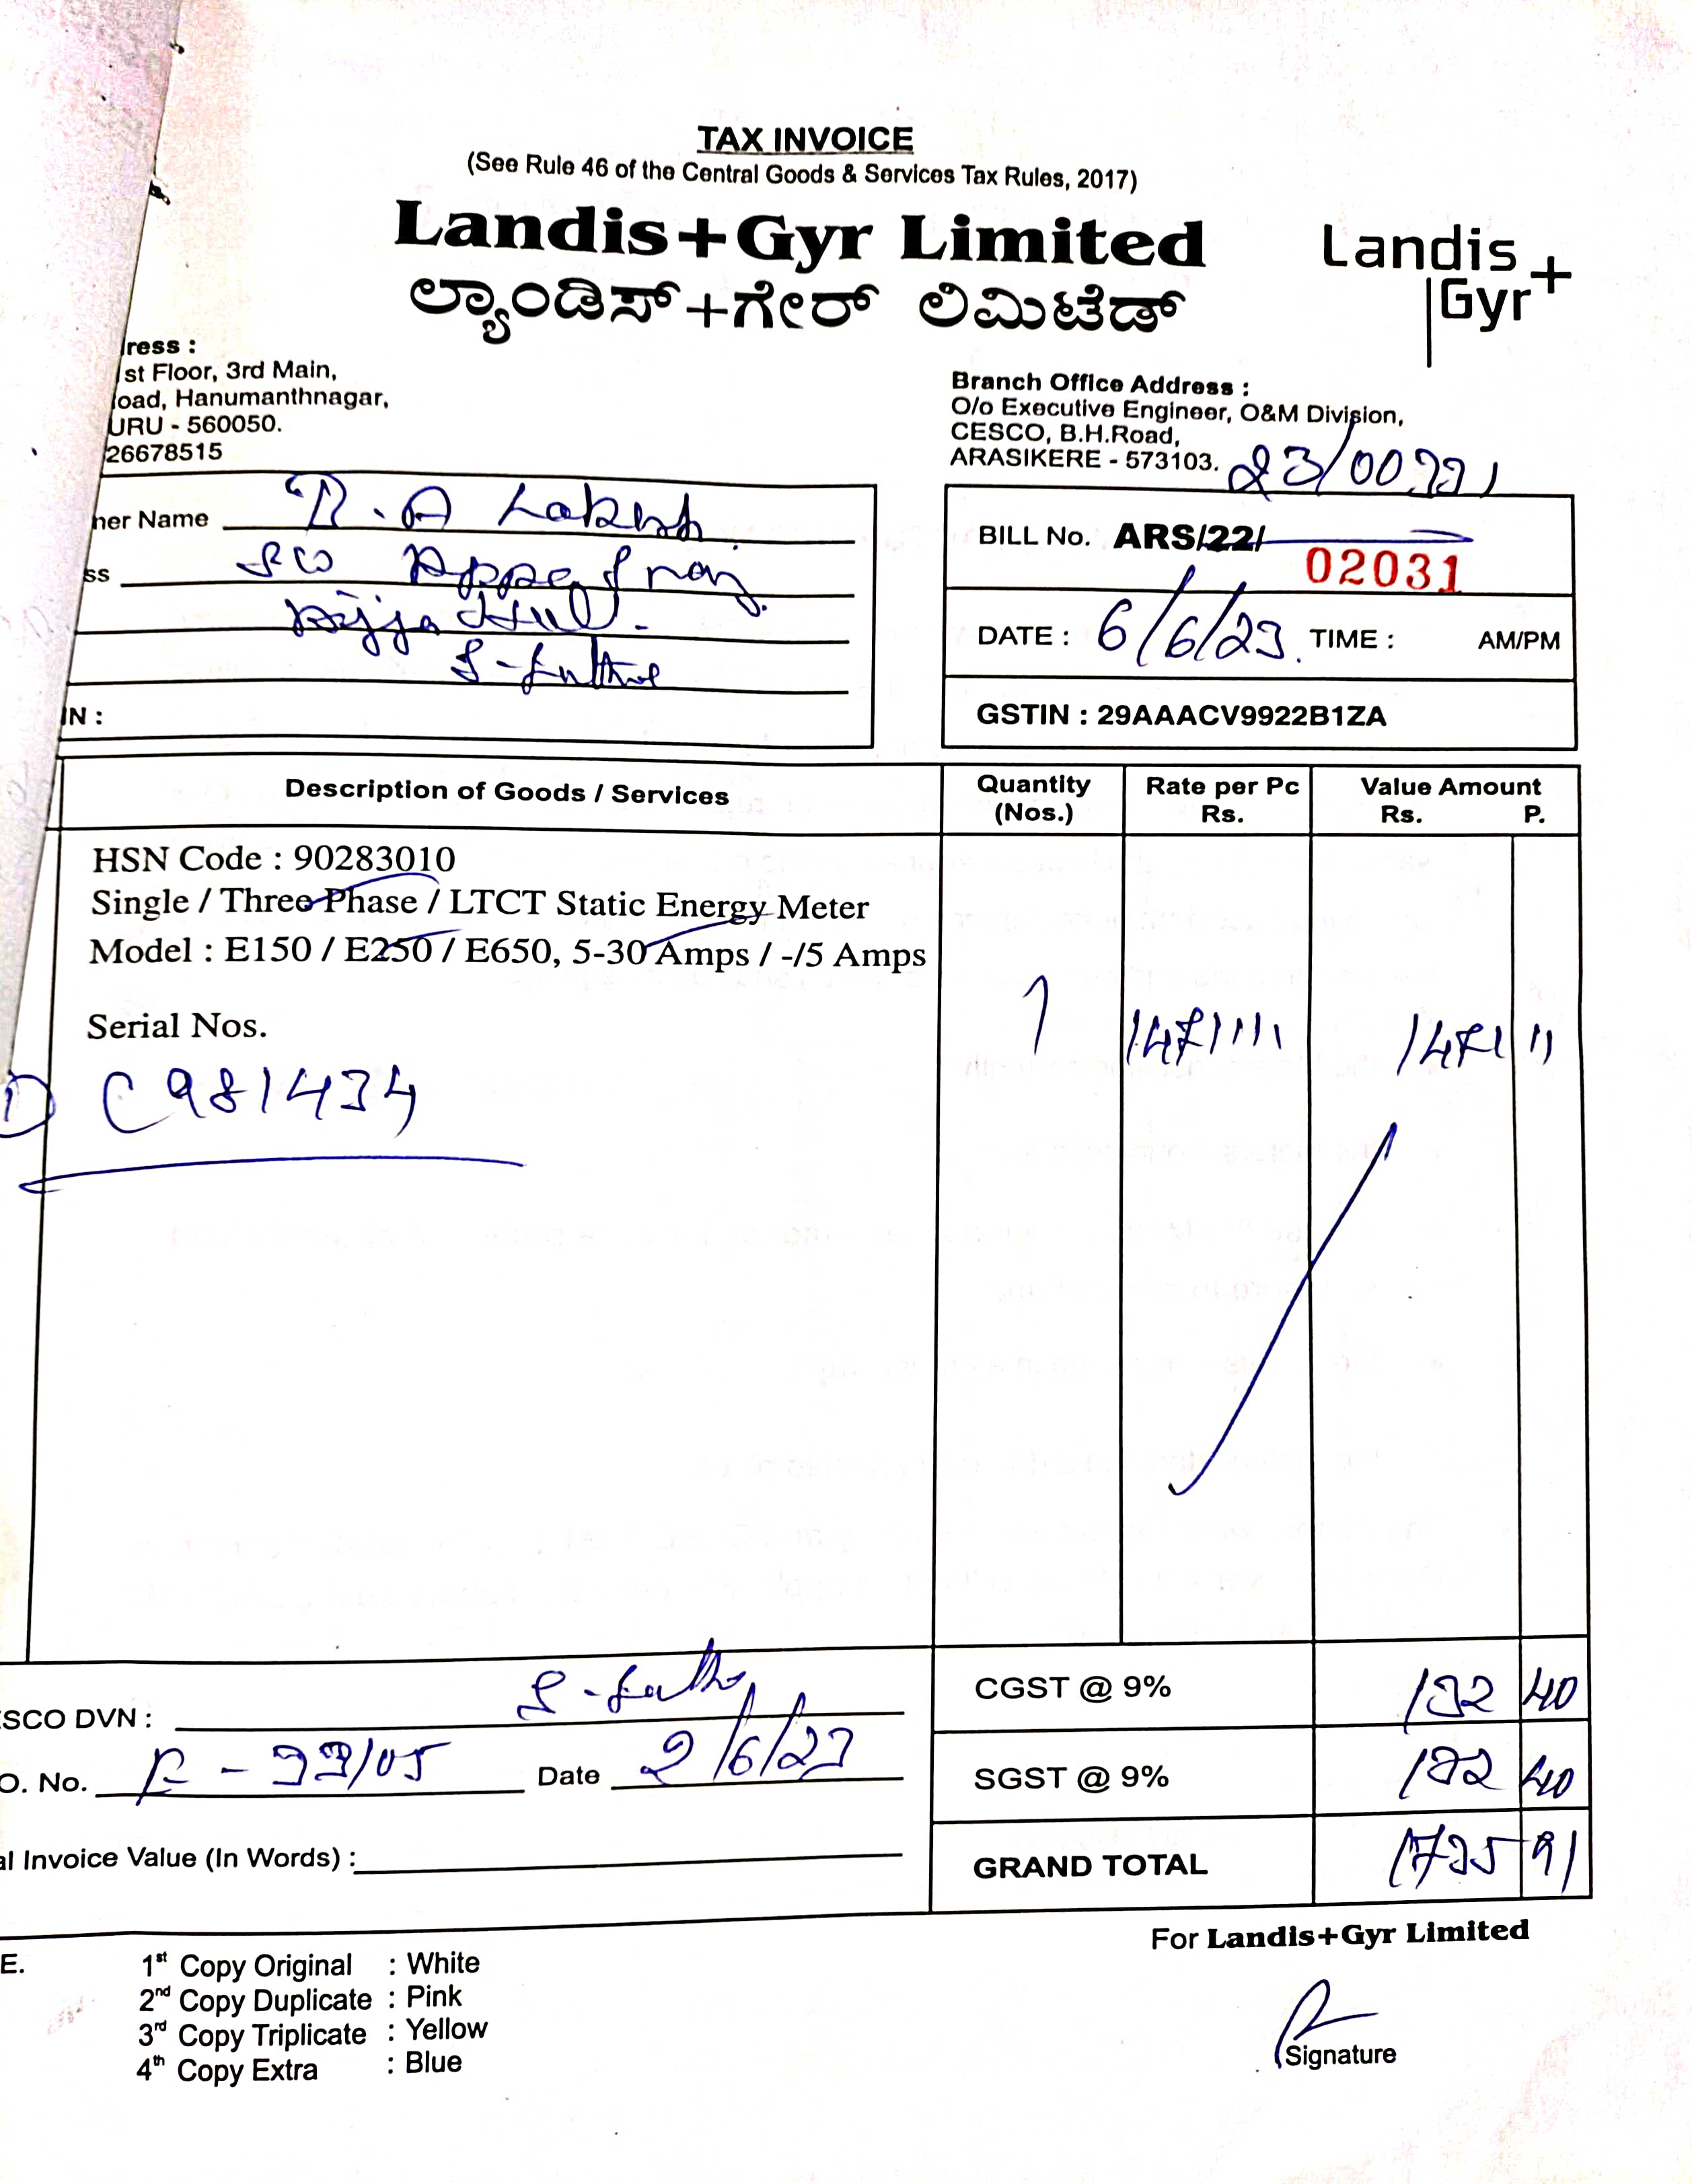 TAX INVOICE
(See Rule 46 of the Central Goods & Services Tax Rules, 2017)
Landis+Gyr Limited
ಲ್ಯಾಂಡಿಸ್+ಗೇರ್ ಲಿಮಿಟೆಡ್
Landis+
Gyr
ress :
st Floor, 3rd Main,
oad, Hanumanthnagar,
URU - 560050.
26678515
Branch Office Address :
O/o Executive Engineer, O&M Division,
CESCO, B.H.Road,
ARASIKERE - 573103.
ner Name
ss
IN :
BILL No. ARS/22/
02031
DATE : 6/6/23. TIME : AM/PM
GSTIN : 29AAACV9922B1ZA
Description of Goods / Services
Quantity (Nos.)
Rate per Pc Rs.
Value Amount Rs. P.
HSN Code : 90283010
Single / Three Phase / LTCT Static Energy Meter
Model : E150 / E250 / E650, 5-30 Amps / -/5 Amps
Serial Nos.
1
1471
1471
C981434
SCO DVN :
CGST @ 9% 132 40
O. No. Date 2/6/23
SGST @ 9% 132 40
al Invoice Value (In Words) :
GRAND TOTAL 1735 91
For Landis+Gyr Limited
E.
1st Copy Original : White
2nd Copy Duplicate : Pink
3rd Copy Triplicate : Yellow
4th Copy Extra : Blue
Signature